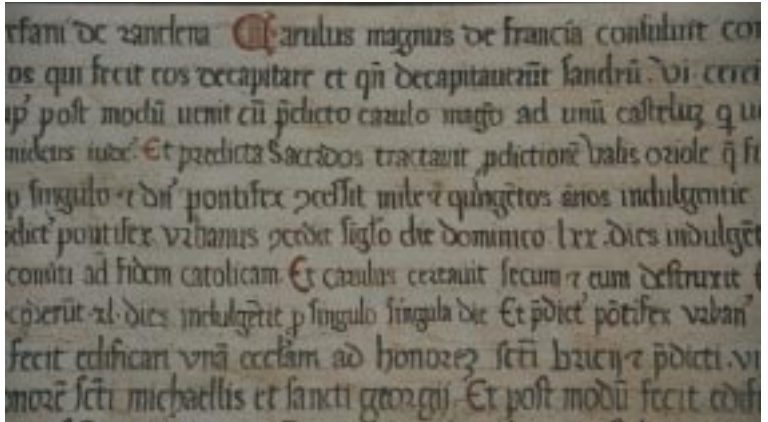 rfani de zandena Carulus magnus de francia consuluit con
os qui fecit eos decapitare et qn̄ decapitauerūt sandrū. Vi. cerci
post modū uenit cū p̄dicto carulo mag̅o ad unū casteluꝫ q
iudeus Et predicta Sacerdos tractauit ꝓdictionē valis oriole q̄ fu
p singulo ⁊ dn̄' pontifex ꝯcessit mile ⁊ quingētos ānos indulgentie
dict' pontifex vrbanus ꝯcedit siglo die dominico lxx. dies indulgēt
conūti ad fidem catolicam. Et carulus certauit secum ⁊ eum destruxit
xl. dies indulgētie p singulo singula die Et p̄dict' pōtifex vrban'
fecit edificari vnā eccłam ad honoreꝫ sc̄ti bricij ⁊ p̄dicti. vr
onorē sc̄ti michaellis et sancti georgij. Et post modū fecit edifi